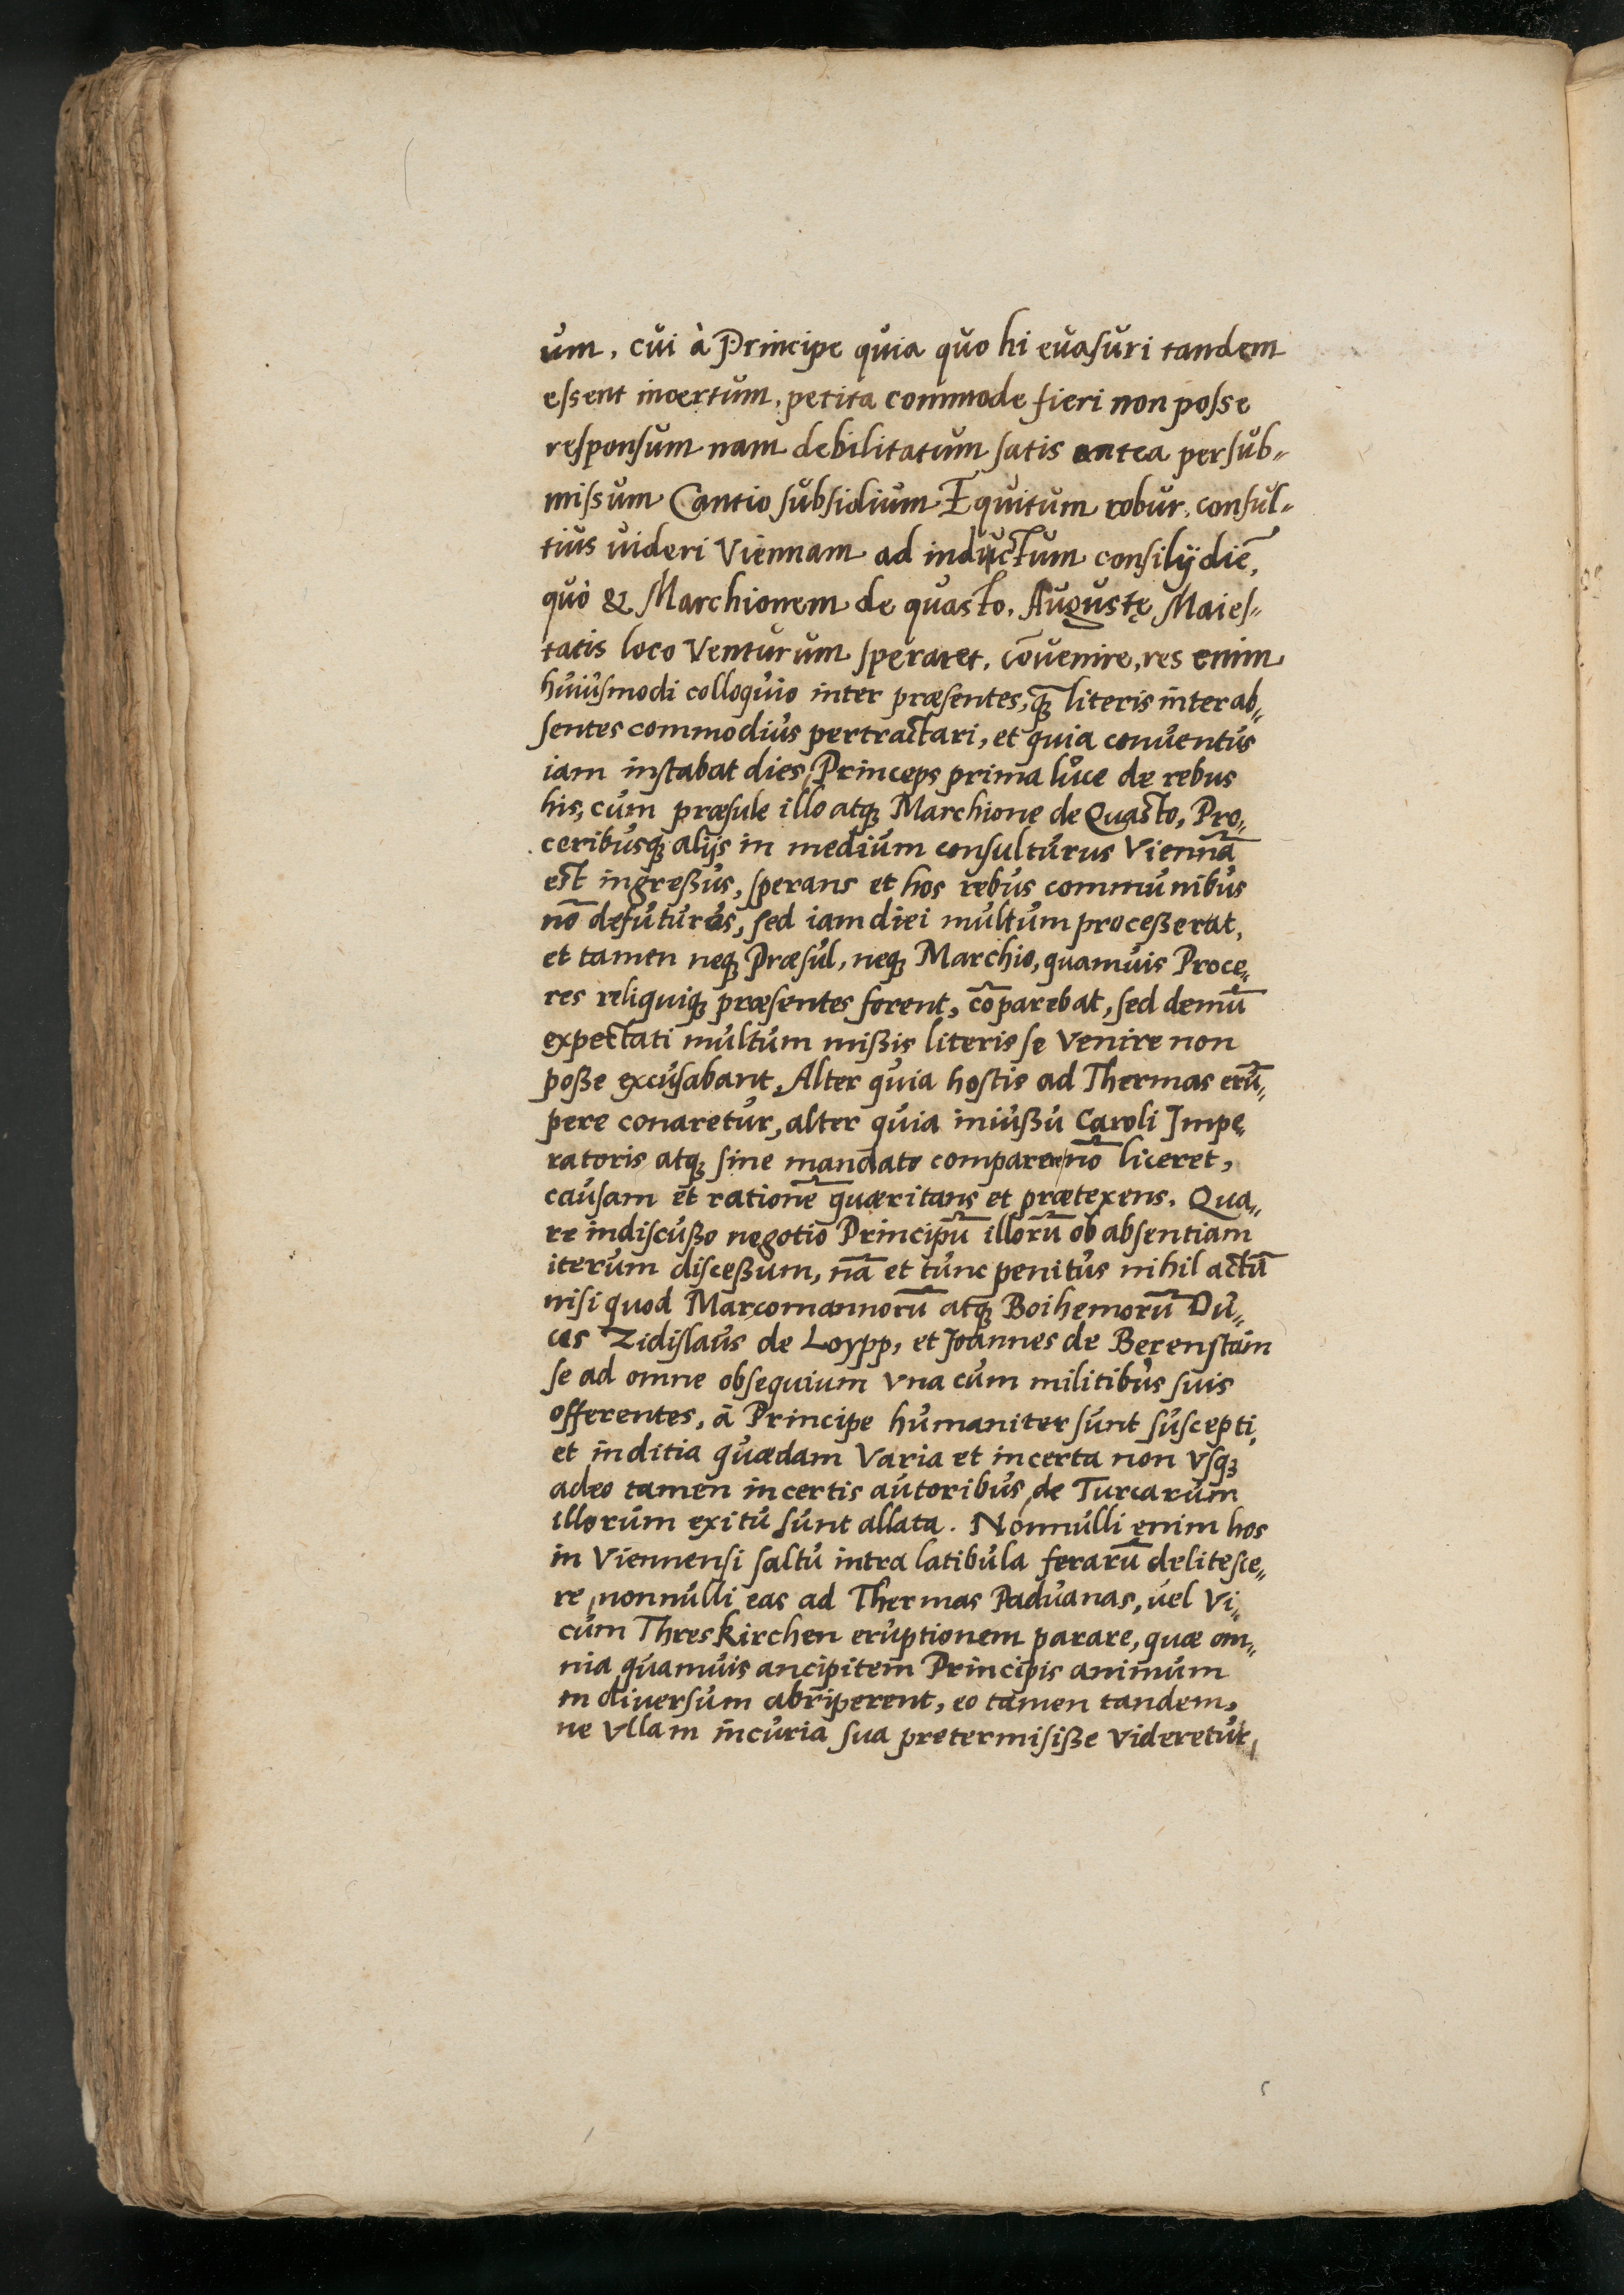 um, cui à Principe quia quo hi euaſuri tandem
eſsent incertum, petita commode fieri non poſse
reſponſum nam debilitatum ſatis antea per ſub-
miſsum Cantio ſubſidium Equitum robur, conſul-
tius uideri Viennam ad inductum conſilij diē,
quò & Marchionem de quasto, Augustę Maieſ-
tatis loco Venturum ſperaret, cōuenire, res enim
huiuſmodi colloquio inter præſentes, q̄ʒ literis inter ab-
ſentes commodius pertractari, et quia conuentus
iam inſtabat dies, Princeps prima luce de rebus
his, cum præſule illo atqʒ Marchione de Quaſto, Pro-
ceribusqʒ alijs in medium conſulturus Viennā
eſt ingreßus, ſperans et hos rebus communibus
nō defuturos, ſed iam diei multum proceßerat,
et tamen neqʒ Præſul, neqʒ Marchio, quamuis Proce-
res reliquiqʒ præſentes forent, cōparebat, ſed demū
expectati multum mißis literis ſe Venire non
poße excuſabant, Alter quia hoſtis ad Thermas erū-
pere conaretur, alter quia iniußu Caroli Impe-
ratoris atqʒ ſine mandato comparere nō liceret,
cauſam et rationē quæritans et prætexens. Qua-
re indiſcußo negotio Principū illorū ob abſentiam
iterum diſceßum, nā et tunc penitus nihil actū
niſi quod Marcomannorū atqʒ Boihemorū Du-
ces Zidiſlaus de Loypp, et Joannes de Berenſtain
ſe ad omne obſequium vna cum militibus ſuis
offerentes, ā Principe humaniter ſunt ſuſcepti,
et inditia quædam Varia et incerta non vſqʒ
adeo tamen incertis autoribus, de Turcarum
illorum exitu ſunt allata. Nonnulli enim hos
in Viennenſi ſaltu intra latibula ferarū deliteſce-
re, nonnulli eas ad Thermas Paduanas, uel Vi-
cum Threskirchen eruptionem parare, quæ om-
nia quamuis ancipitem Principis animum
in diuerſum abriperent, eo tamen tandem,
ne Vllam incuria ſua pretermiſiße Videretur,